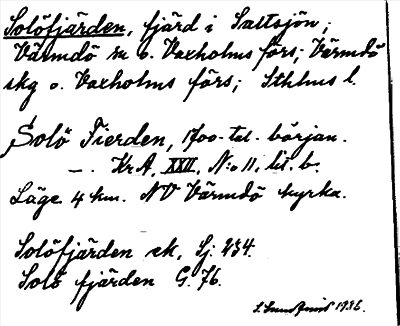 Solöfjärden, fjärd i Saltsjön;
Värmdö sn o. Vaxholms förs; Värmdö
skg o. Vaxholms förs; Sthlms l.
Solö Fierden, 1700-tal. början.
—. KrA, XXII, N:o 11, lit. b.
Läge 4 km. NV Värmdö kyrka.
Solöfjärden sk, Sj: 234.
Solö fjärden G. 76.
1936.